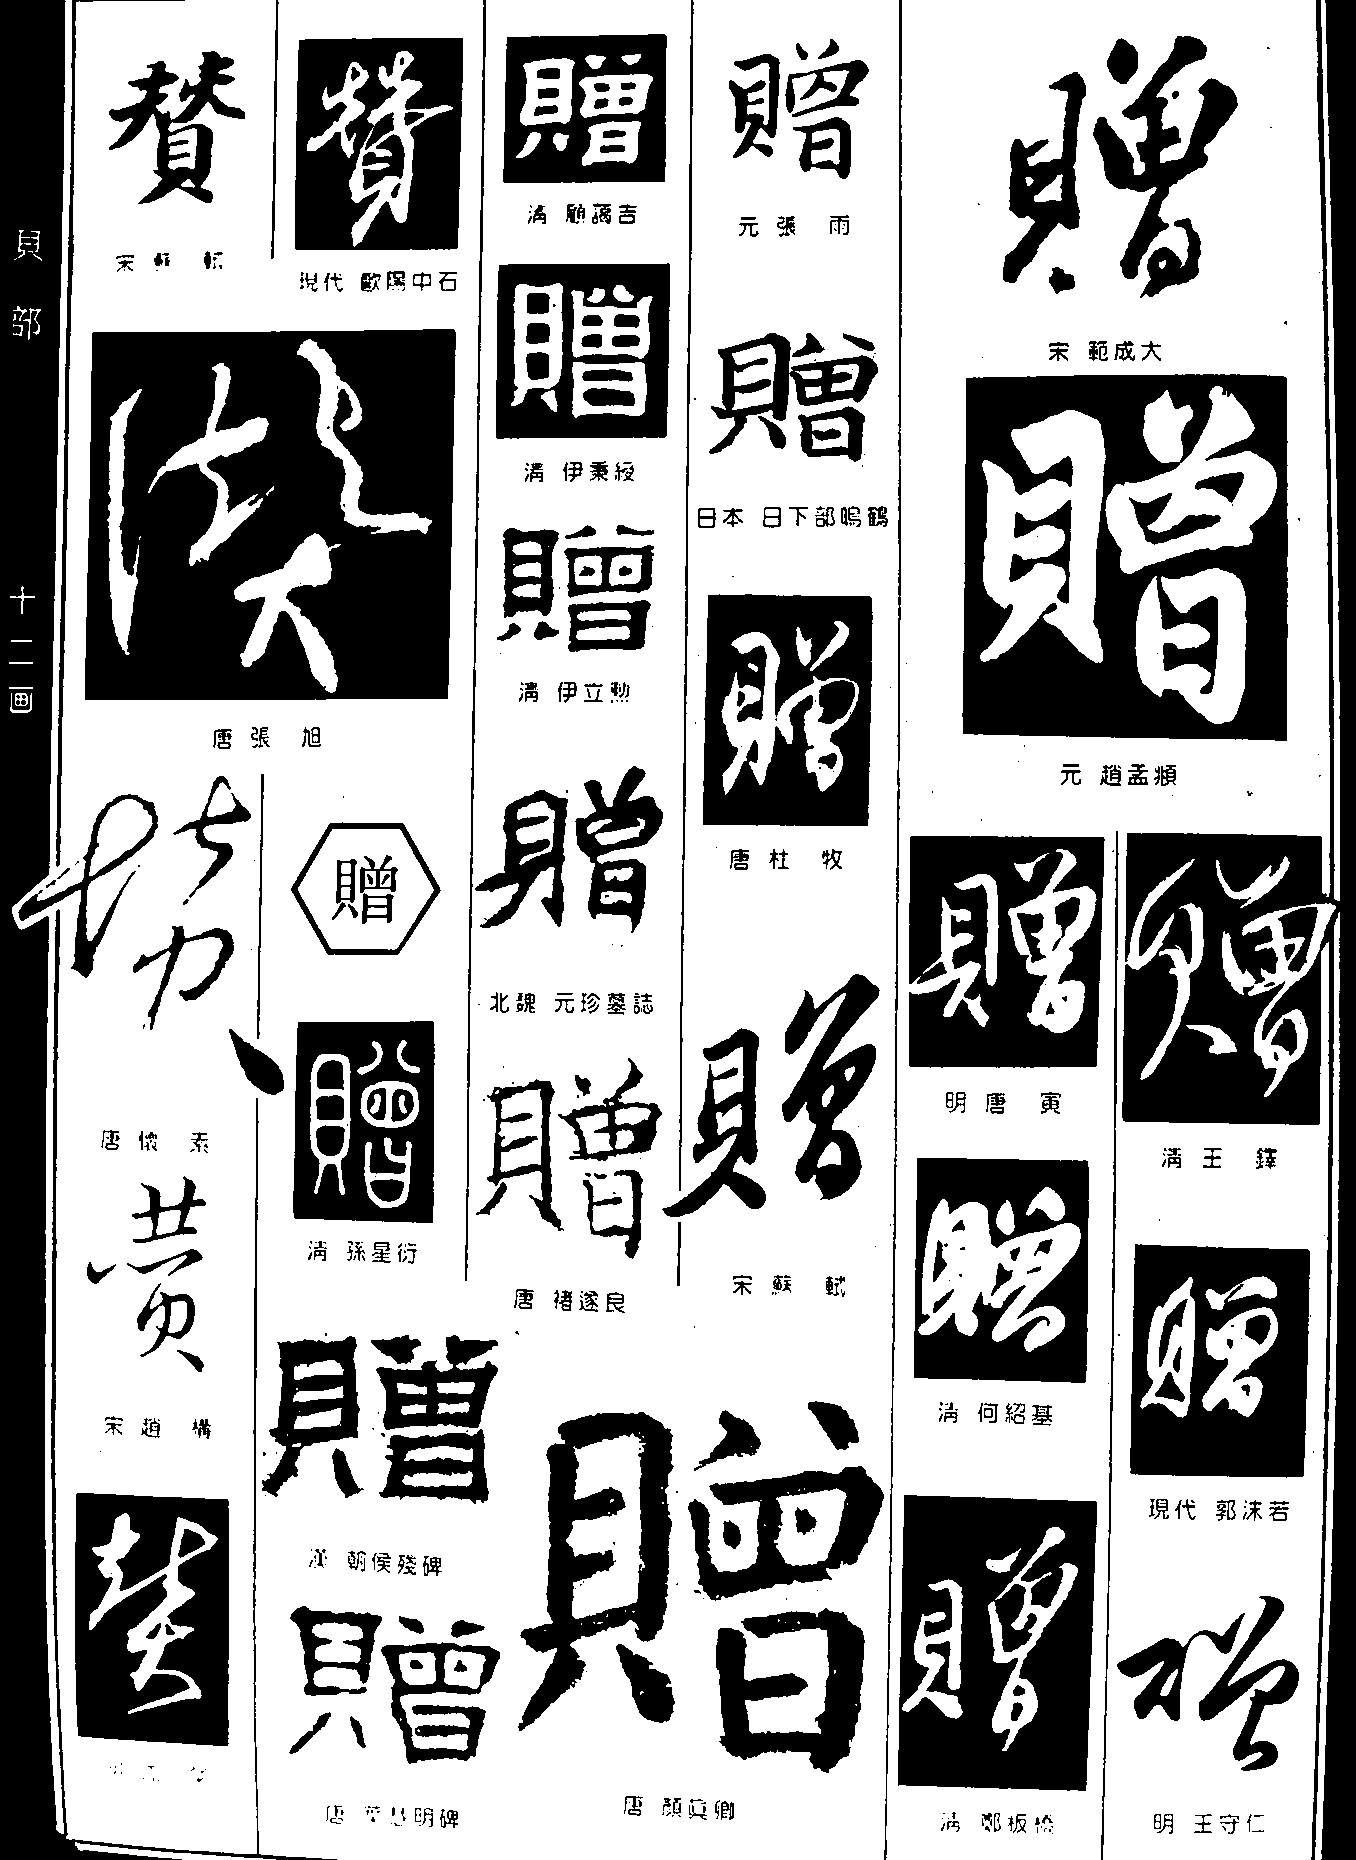 貝部
十二画
贊
宋 蘇 軾
贊
現代 歐陽中石
贊
唐 張 旭
贊
唐 懷 素
贊
宋 趙 構
贊
贈
贈
清 孫星衍
贈
漢 朝侯殘碑
贈
唐 葉慧明碑
贈
清 顧藹吉
贈
清 伊秉綬
贈
清 伊立勲
贈
北魏 元珍墓誌
贈
唐 褚遂良
贈
唐 顏真卿
贈
元 張 雨
贈
日本 日下部鳴鶴
贈
唐 杜 牧
贈
宋 蘇 軾
贈
宋 範成大
贈
元 趙孟頫
贈
明 唐 寅
贈
清 何紹基
贈
清 鄭板橋
贈
清 王 鐸
贈
現代 郭沫若
贈
明 王守仁